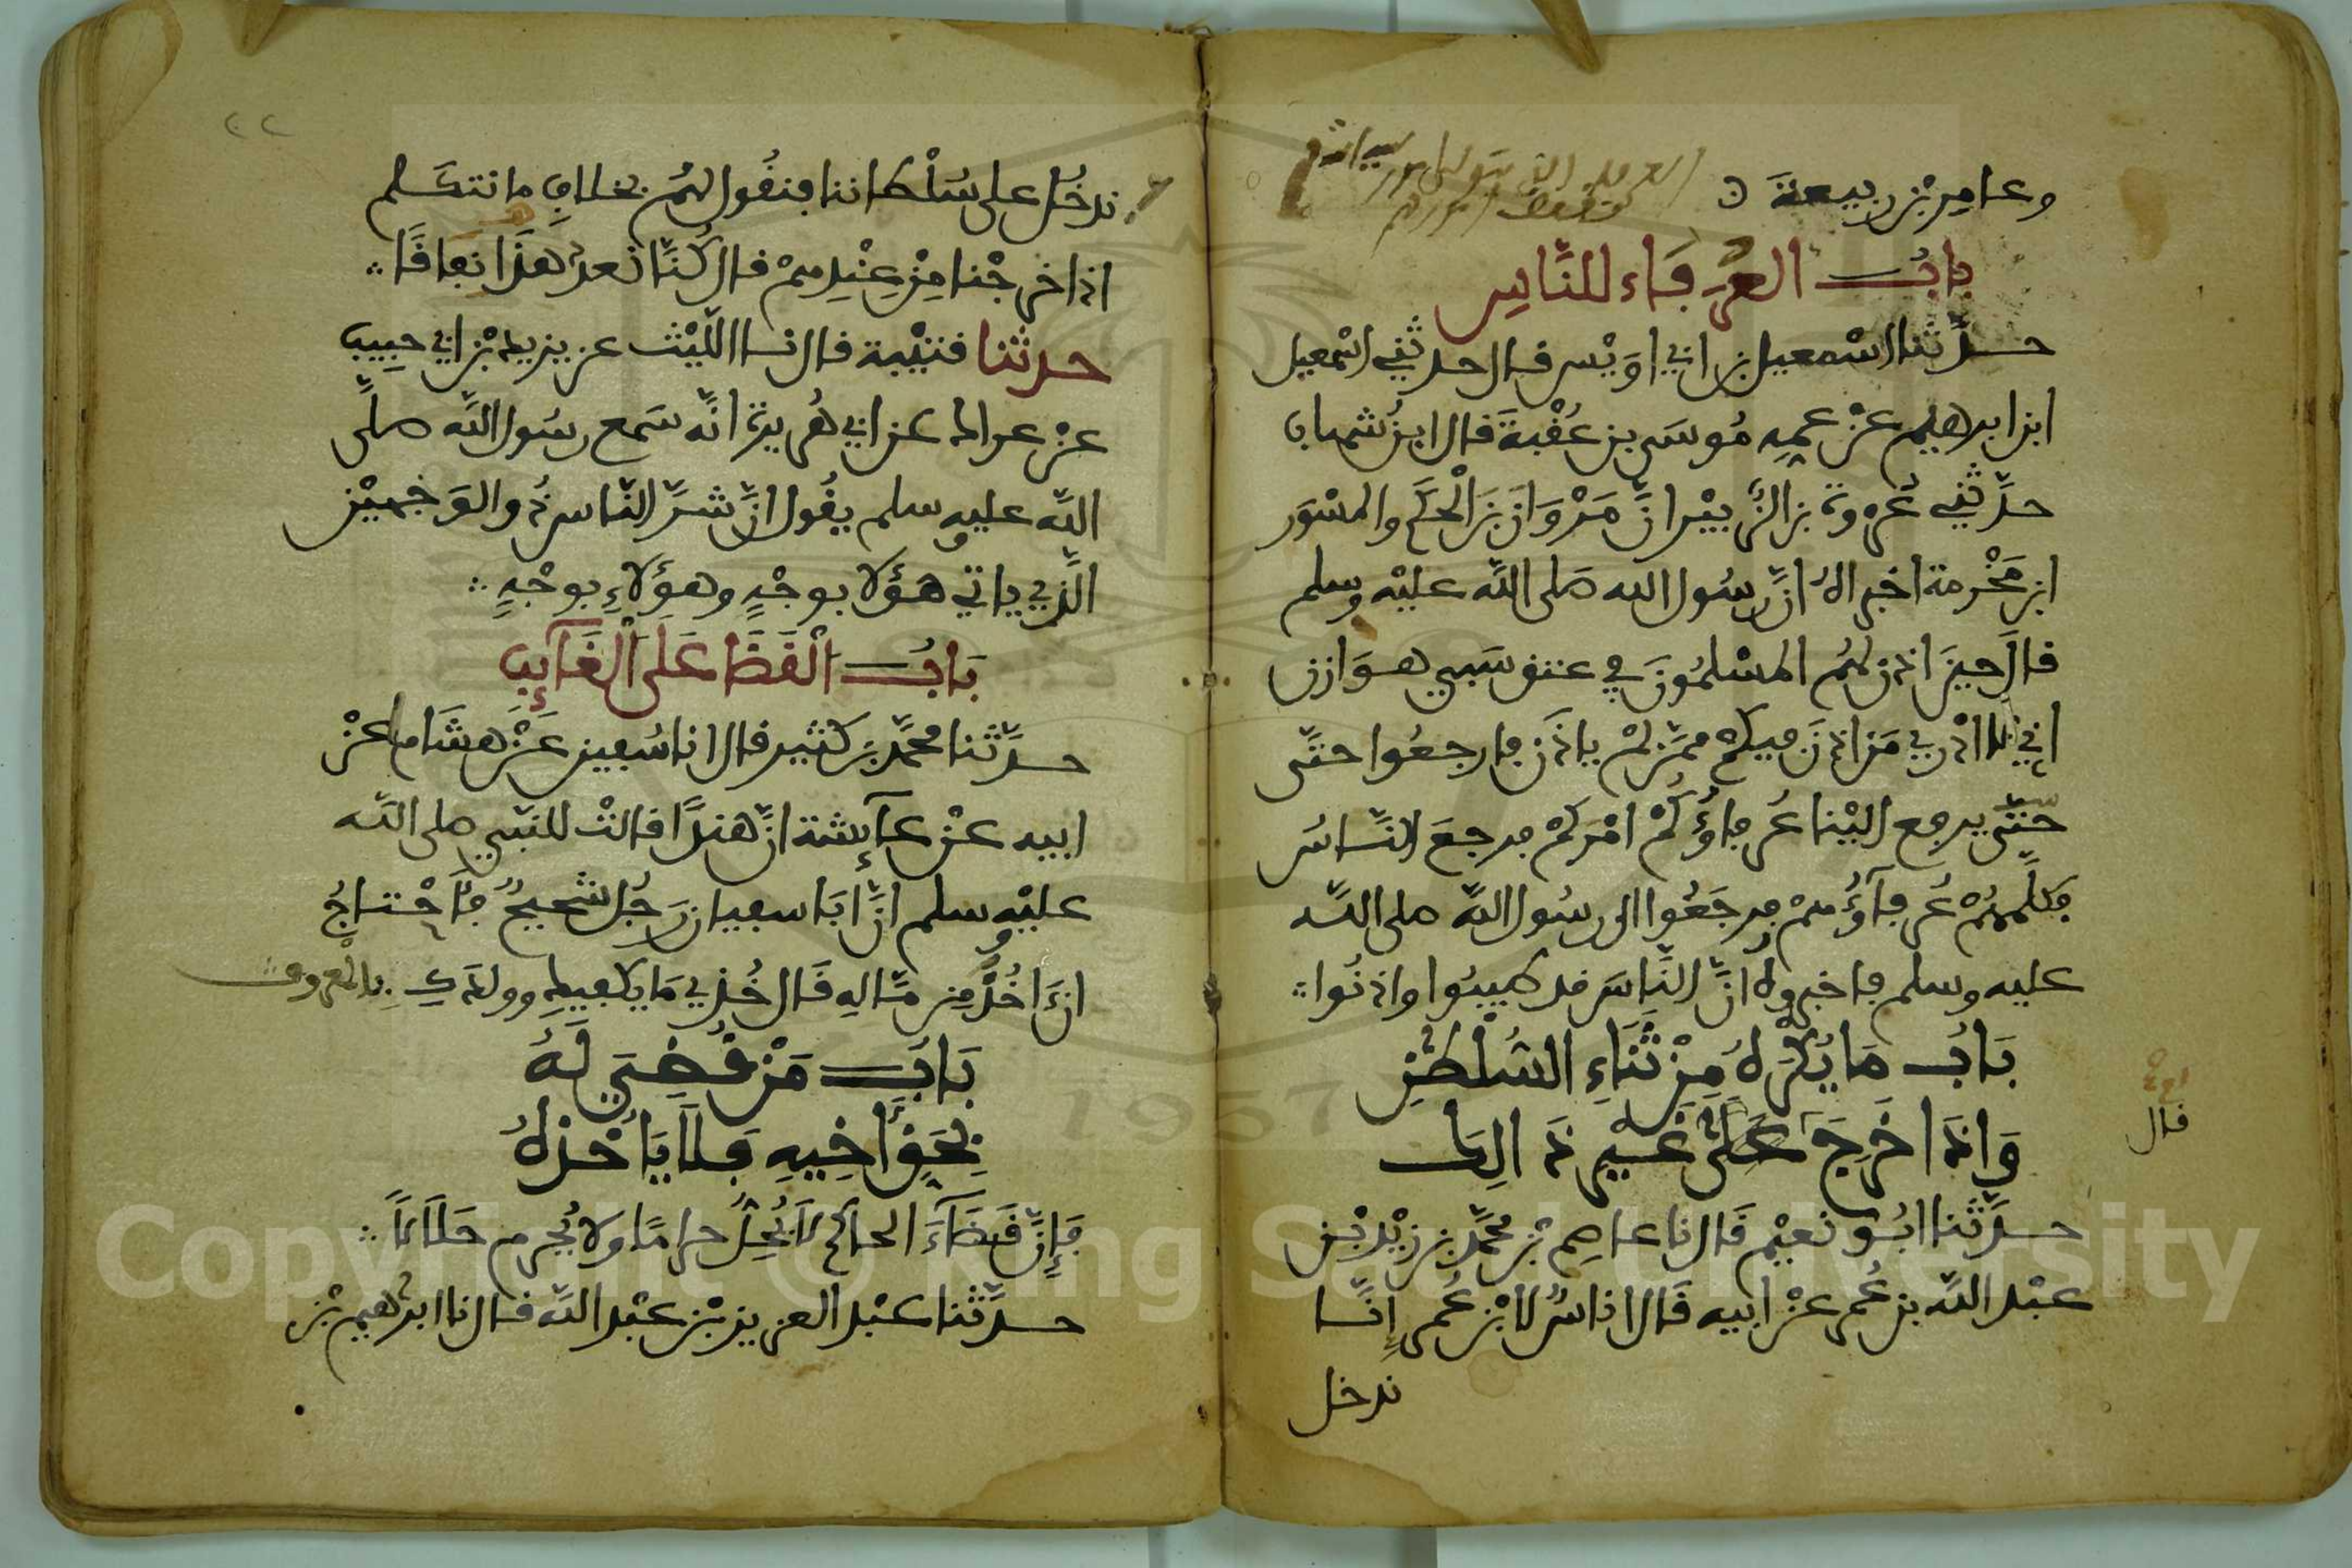 وعامر بن ربيعة
باب العرفاء للناس
حدثنا اسمعيل بن ابي اويس قال حدثني اسمعيل
ابن ابرهيم عن عمه موسى بن عقبة قال ابن شهاب
حدثني عروة بن الزبير ان مروان بن الحكم والمسور
ابن مخرمة اخبراه ان رسول الله صلى الله عليه وسلم
قال حين اذن لهم المسلمون في عتق سبي هوازن
اني لا ادري من اذن فيكم ممن لم ياذن فارجعوا حتى
حتى يرفع الينا عرفاؤكم امركم فرجع الناس
فكلمهم عرفاؤهم فرجعوا الى رسول الله صلى الله
عليه وسلم فاخبروه ان الناس قد طيبوا واذنوا
باب ما يكره من ثناء السلطن
واذا خرج على غير ذالك
قال
حدثنا ابو نعيم قال نا عاصم بن محمد بن زيد بن
عبد الله بن عمر عن ابيه قال اناس لابن عمر انا
ندخل
٢٢
ندخل على سلطاننا فنقول لهم بخلاف ما نتكلم
اذا خرجنا من عندهم قال كنا نعد هذا نفاقا
حدثنا قتيبة قال نا الليث عن يزيد بن ابي حبيب
عن عراك عن ابي هريرة انه سمع رسول الله صلى
الله عليه وسلم يقول ان شر الناس ذو الوجهين
الذي ياتي هؤلا بوجه وهؤلاء بوجه
باب القضا على الغايب
حدثنا محمد بن كثير قال انا سفين عن هشام عن
ابيه عن عايشة ان هندا قالت للنبي صلى الله
عليه وسلم ان ابا سفيان رجل شحيح فاحتاج
ان اخذ من ماله قال خذي ما يكفيك وولدك بالمعروف
باب من قضي له
بحق اخيه فلا ياخذه
فان قضاء الحاكم لا يحل حراما ولا يحرم حلالا
حدثنا عبد العزيز بن عبد الله قال نا ابرهيم بن
Copyright © King Saud University
1957